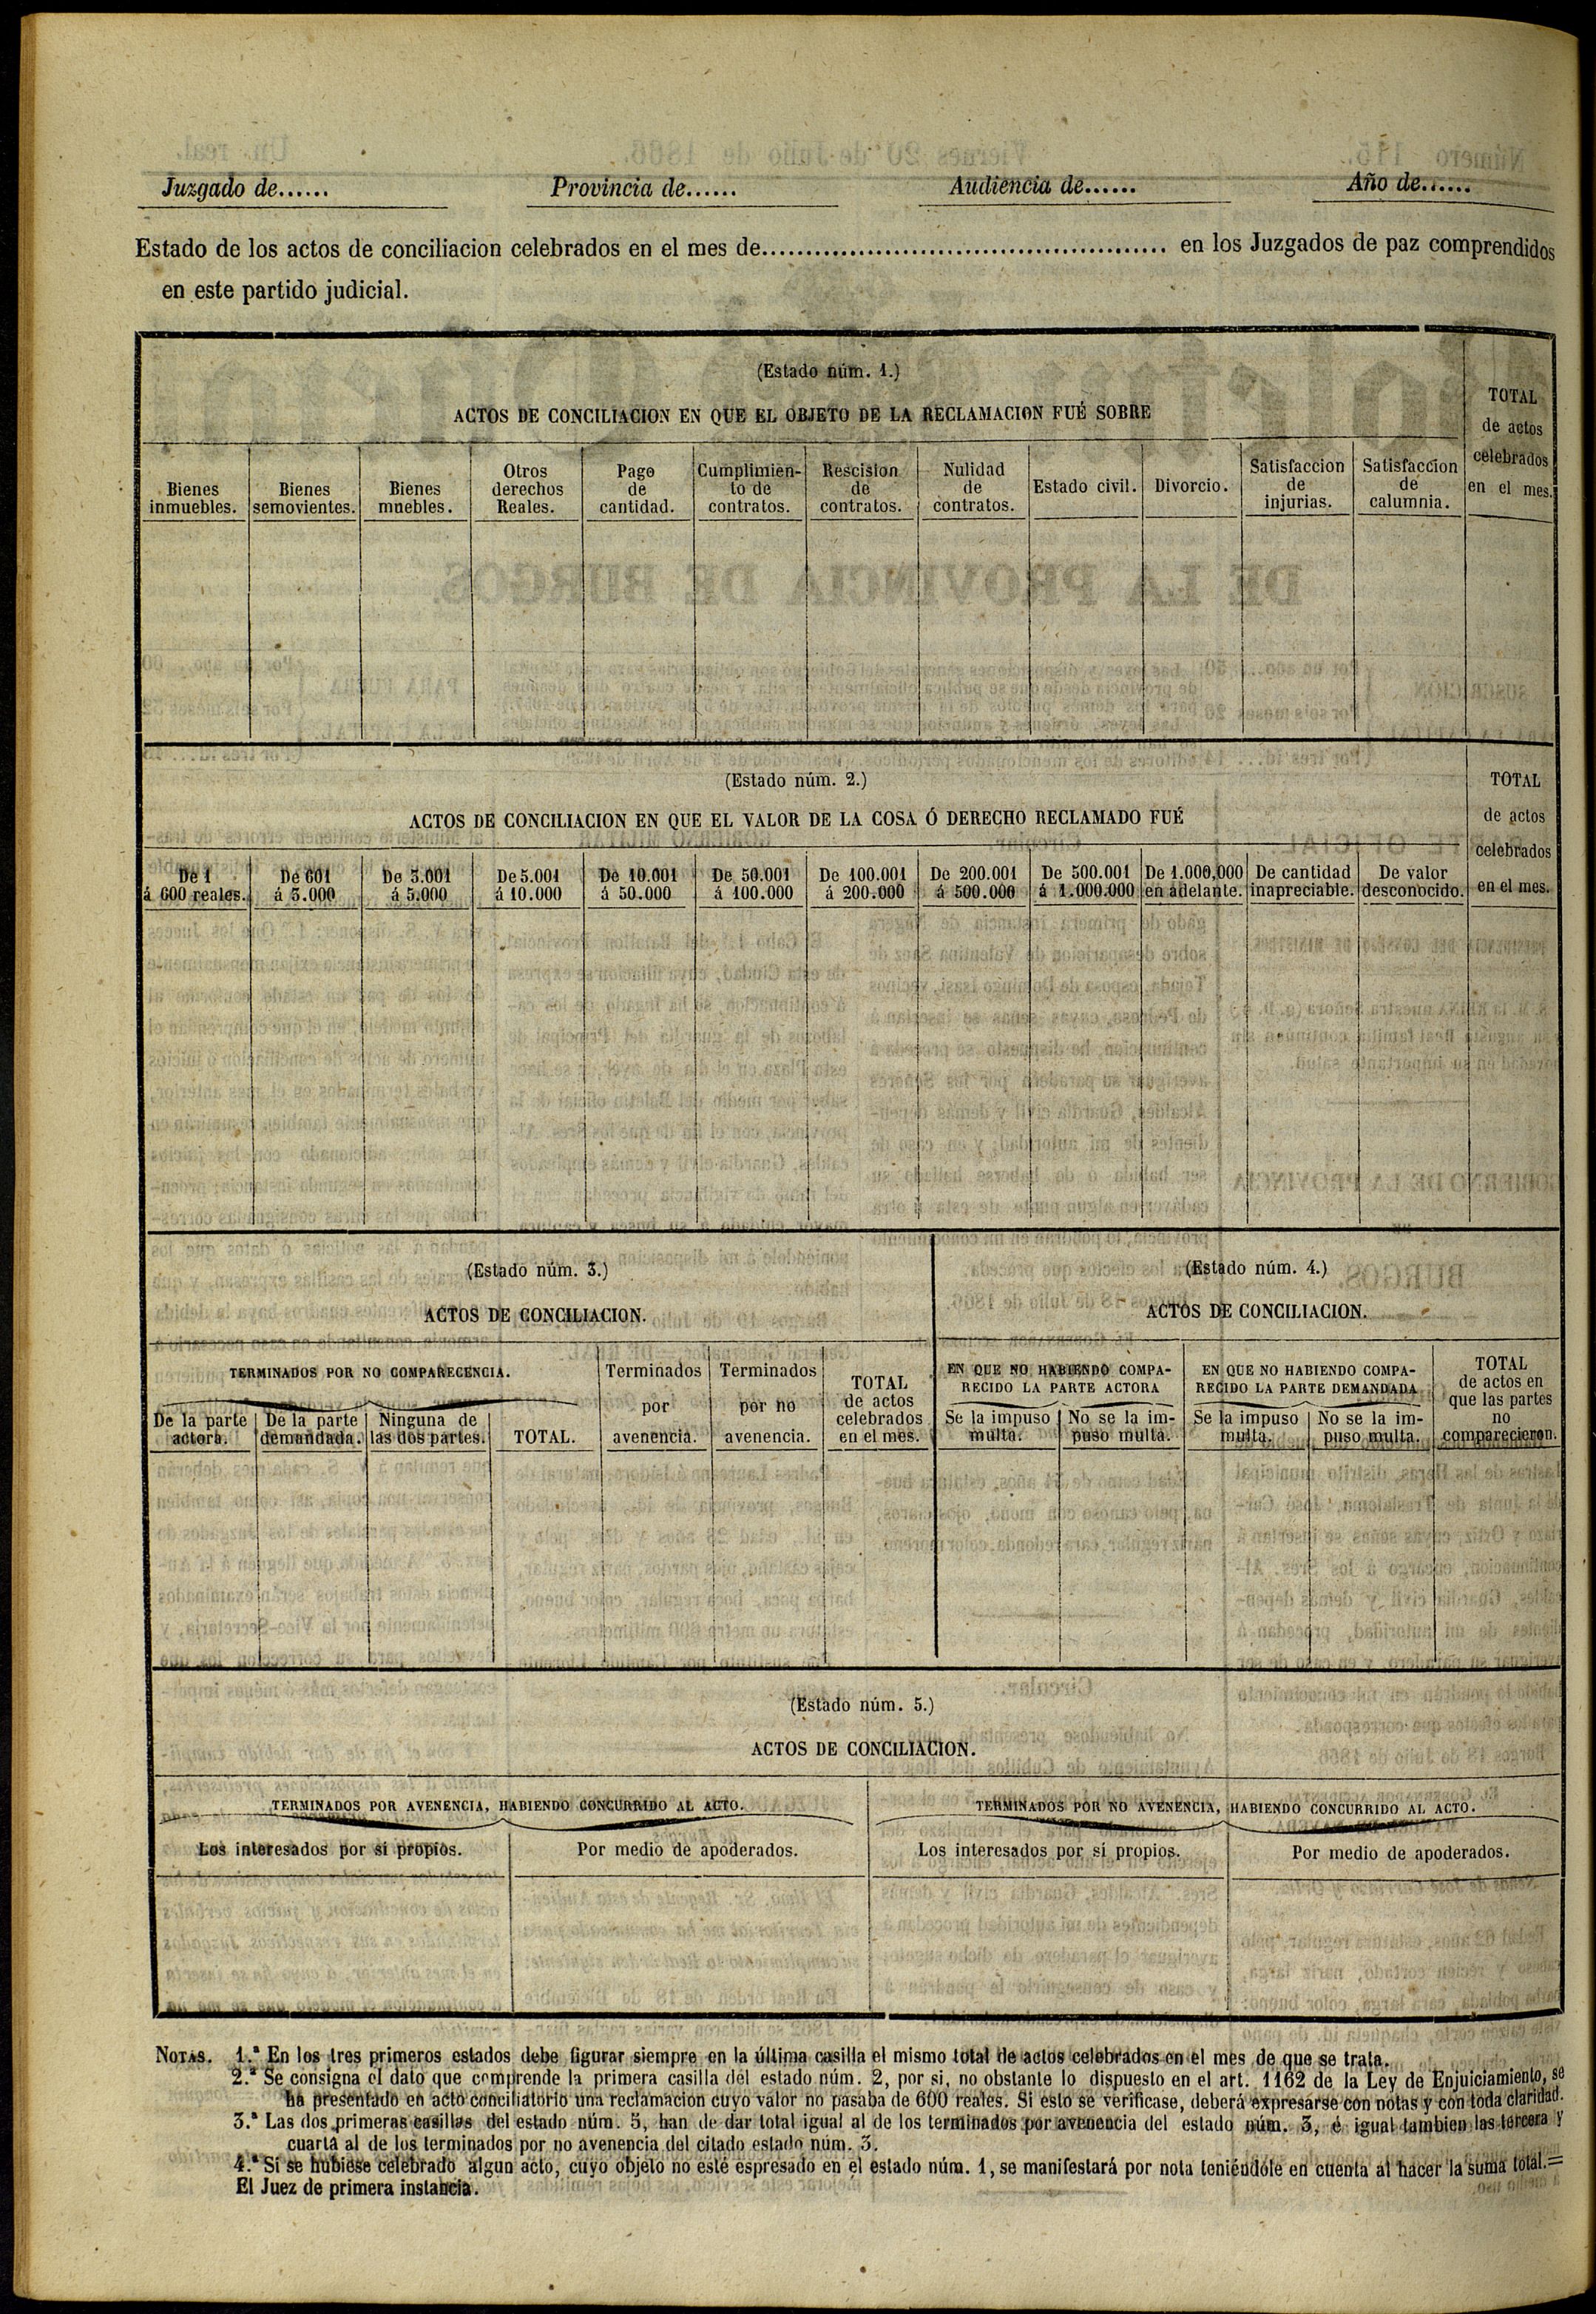 Juzgado de...... Provincia de...... Audiencia de...... Año de......
Estado de los actos de conciliacion celebrados en el mes de.............................................. en los Juzgados de paz comprendidos
en este partido judicial.
(Estado núm. 1.)
ACTOS DE CONCILIACION EN QUE EL OBJETO DE LA RECLAMACION FUÉ SOBRE
TOTAL
de actos
celebrados
en el mes.
Bienes
inmuebles.
Bienes
semovientes.
Bienes
muebles.
Otros
derechos
Reales.
Pago
de
cantidad.
Cumplimien-
to de
contratos.
Rescision
de
contratos.
Nulidad
de
contratos.
Estado civil.
Divorcio.
Satisfaccion
de
injurias.
Satisfaccion
de
calumnia.
(Estado núm. 2.)
ACTOS DE CONCILIACION EN QUE EL VALOR DE LA COSA Ó DERECHO RECLAMADO FUÉ
TOTAL
de actos
celebrados
en el mes.
De 1
á 600 reales.
De 601
á 3.000
De 3.001
á 5.000
De 5.001
á 10.000
De 10.001
á 50.000
De 50.001
á 100.000
De 100.001
á 200.000
De 200.001
á 500.000
De 500.001
á 1.000.000
De 1.000,000
en adelante.
De cantidad
inapreciable.
De valor
desconocido.
(Estado núm. 3.)
ACTOS DE CONCILIACION.
TERMINADOS POR NO COMPARECENCIA.
De la parte
actora.
De la parte
demandada.
Ninguna de
las dos partes.
TOTAL.
Terminados
por
avenencia.
Terminados
por no
avenencia.
TOTAL
de actos
celebrados
en el mes.
(Estado núm. 4.)
ACTOS DE CONCILIACION.
EN QUE NO HABIENDO COMPA-
RECIDO LA PARTE ACTORA
Se la impuso
multa.
No se la im-
puso multa.
EN QUE NO HABIENDO COMPA-
RECIDO LA PARTE DEMANDADA
Se la impuso
multa.
No se la im-
puso multa.
TOTAL
de actos en
que las partes
no
comparecieron.
(Estado núm. 5.)
ACTOS DE CONCILIACION.
TERMINADOS POR AVENENCIA, HABIENDO CONCURRIDO AL ACTO.
Los interesados por sí propios.
Por medio de apoderados.
TERMINADOS POR NO AVENENCIA, HABIENDO CONCURRIDO AL ACTO.
Los interesados por sí propios.
Por medio de apoderados.
NOTAS. 1.ª En los tres primeros estados debe figurar siempre en la última casilla el mismo total de actos celebrados en el mes de que se trata.
2.ª Se consigna el dato que comprende la primera casilla del estado núm. 2, por si, no obstante lo dispuesto en el art. 1162 de la Ley de Enjuiciamiento, se
ha presentado en acto conciliatorio una reclamacion cuyo valor no pasaba de 600 reales. Si esto se verificase, deberá expresarse con notas y con toda claridad.
3.ª Las dos primeras casillas del estado núm. 5, han de dar total igual al de los terminados por avenencia del estado núm. 3, é igual tambien las tercera y
cuarta al de los terminados por no avenencia del citado estado núm. 3.
4.ª Si se hubiese celebrado algun acto, cuyo objeto no esté espresado en el estado núm. 1, se manifestará por nota teniéndole en cuenta al hacer la suma total.=
El Juez de primera instancia.